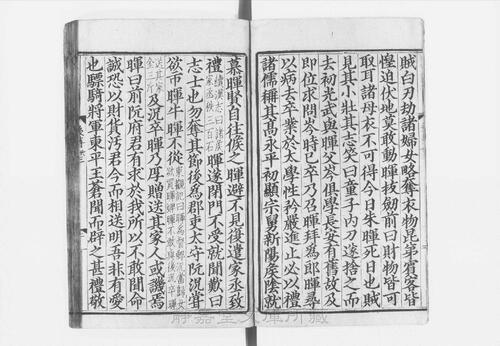 賊白刃劫諸婦女略奪衣物昆弟賓客皆
惶迫伏地莫敢動暉拔劍前曰財物皆可
取耳諸母衣不可得今日朱暉死日也賊
見其小壯其志笑曰童子內刀遂捨之而
去初光武與暉父岑俱學長安有舊故及
即位求問岑時已卒乃召暉拜為郎暉尋
以病去卒業於太學性矜嚴進止必以禮
諸儒稱其高永平初顯宗舅新陽侯陰就
慕暉賢自往候之暉避不見復遣家丞致
禮
暉遂閉門不受就聞歎曰
志士也勿奪其節後為郡吏太守阮況嘗
欲市暉婢暉不從
及況卒暉乃厚贈送其家人或譏焉
暉曰前阮府君有求於我所以不敢聞命
誠恐以財貨汙君今而相送明吾非有愛
也驃騎將軍東平王蒼聞而辟之甚禮敬
靜嘉堂文庫所藏